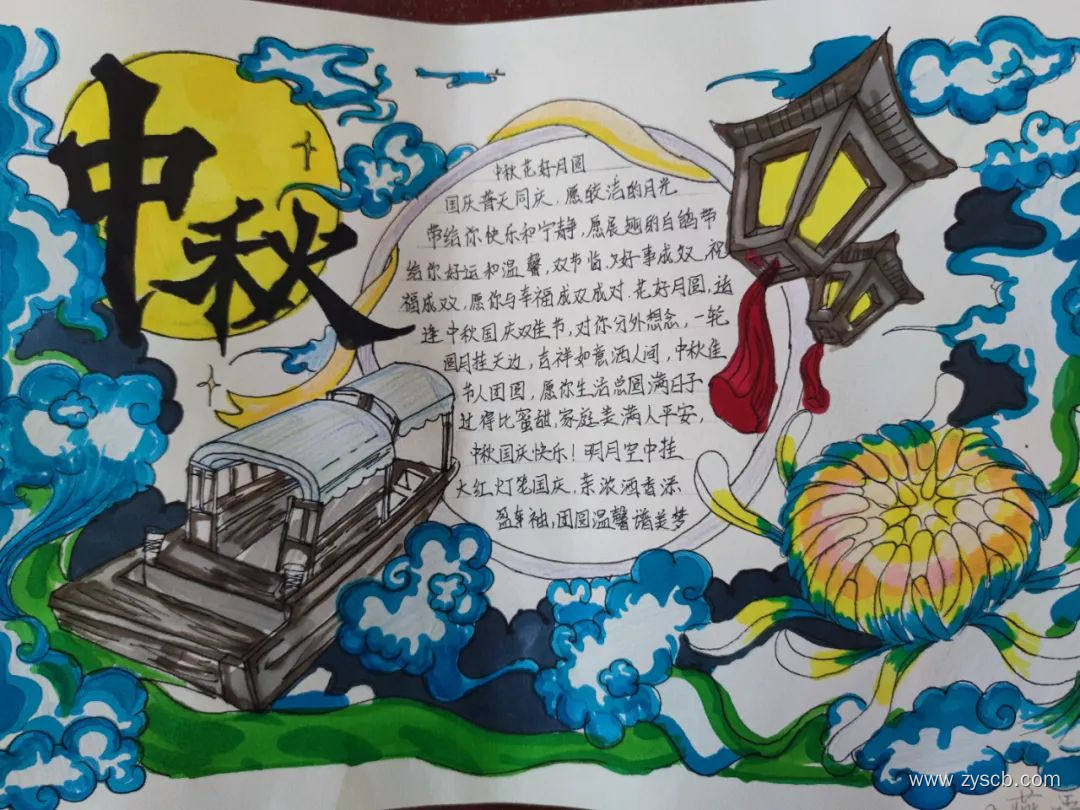 中秋
中秋花好月圆
国庆普天同庆，愿皎洁的月光
带给你快乐和宁静，愿展翅的白鸽带
给你好运和温馨，双节临，好事成双，祝
福成双，愿你与幸福成双成对．花好月圆，适
逢中秋国庆双佳节，对你分外想念，一轮
圆月挂天边，吉祥如意洒人间，中秋佳
节人团圆，愿你生活总圆满日子
过得比蜜甜，家庭美满人平安，
中秋国庆快乐！明月空中挂
大红灯笼国庆，亲浓酒香添
盈车袖，团圆温馨谱美梦
www.zyscb.com